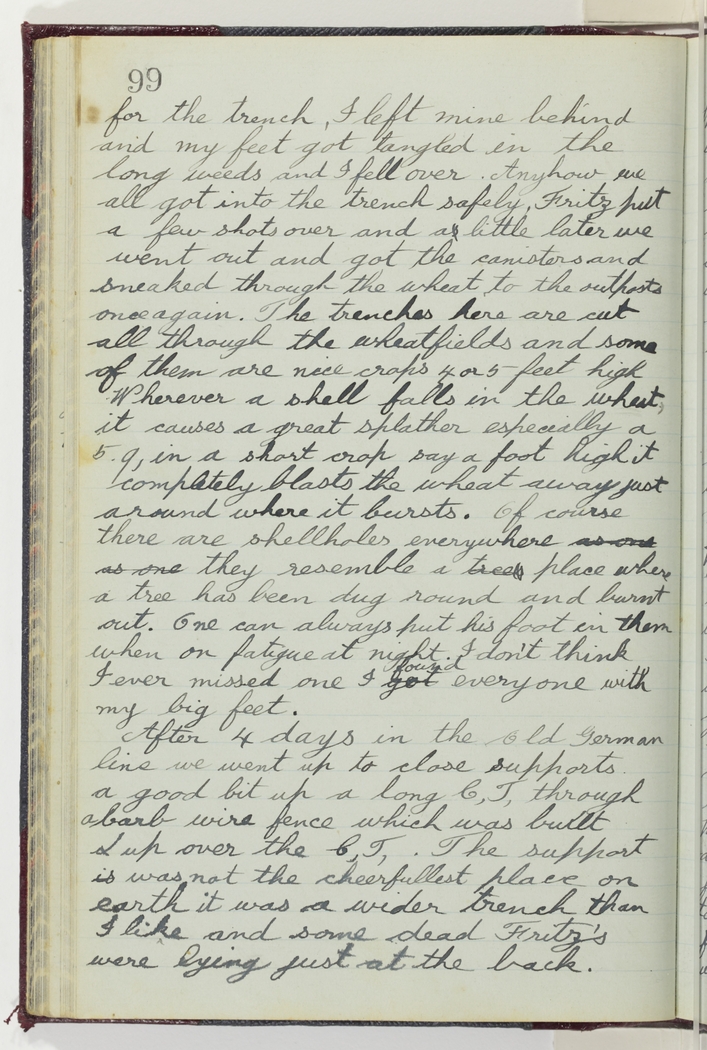 99
for the trench, I left mine behind
and my feet got tangled in the
long weeds and I fell over. Anyhow we
all got into the trench safely, Fritz put
a few shots over and a little later we
went out and got the canisters and
sneaked through the wheat to the outposts
once again. The trenches here are cut
all through the wheatfields and some
of them are nice crops 4 or 5 feet high
Wherever a shell falls in the wheat,
it causes a great splather especially a
5.9, in a short crop say a foot high it
completely blasts the wheat away just
around where it bursts. Of course
there are shellholes everywhere as one
as one they resemble a trees place where
a tree has been dug round and burnt
out. One can always put his foot in them
when on fatigue at night. I don't think
I ever missed one I got found everyone with
my big feet.
After 4 days in the Old German
line we went up to close supports
a good bit up a long C,T, through
a barb wire fence which was built
& up over the C,T,. The support
is was not the cheerfullest place on
earth it was a wider trench than
I like and some dead Fritz's
were lying just at the back.